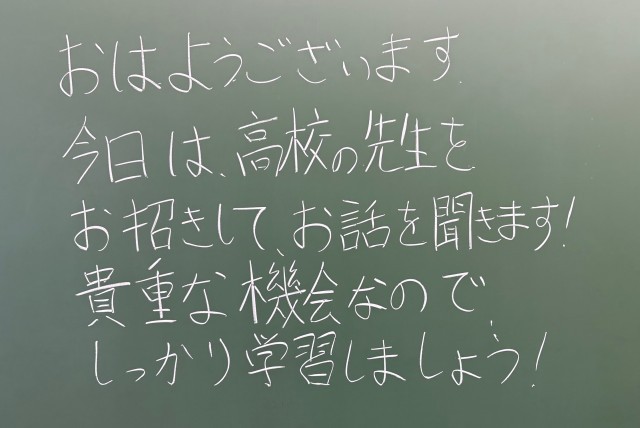 おはようございます.
今日は、高校の先生を
お招きして、お話を聞きます!
貴重な機会なので、
しっかり学習しましょう!